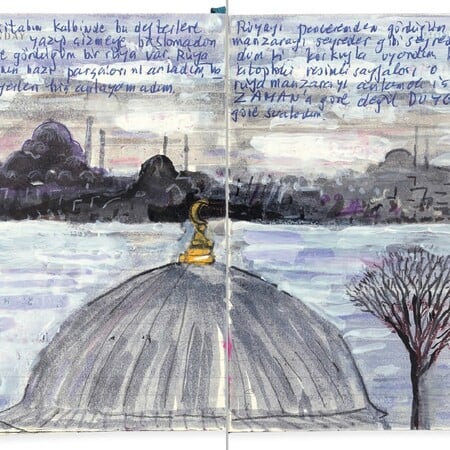 NDAY
kitabın kalbinde bu defterlere
yazıp çizmeye başlamadan
gördüğüm bir rüya var. Rüya
bazı parçalarını anladım,
yerleri hiç anlayamadım.
Rüyayı pencereden gördüğüm
manzarayı seyreder gibi
bir korkuyla
kitaptaki resimli sayfaları o
rüya manzarayı anlamak
ZAMANA göre değil DUYGU
göre sıraladım.